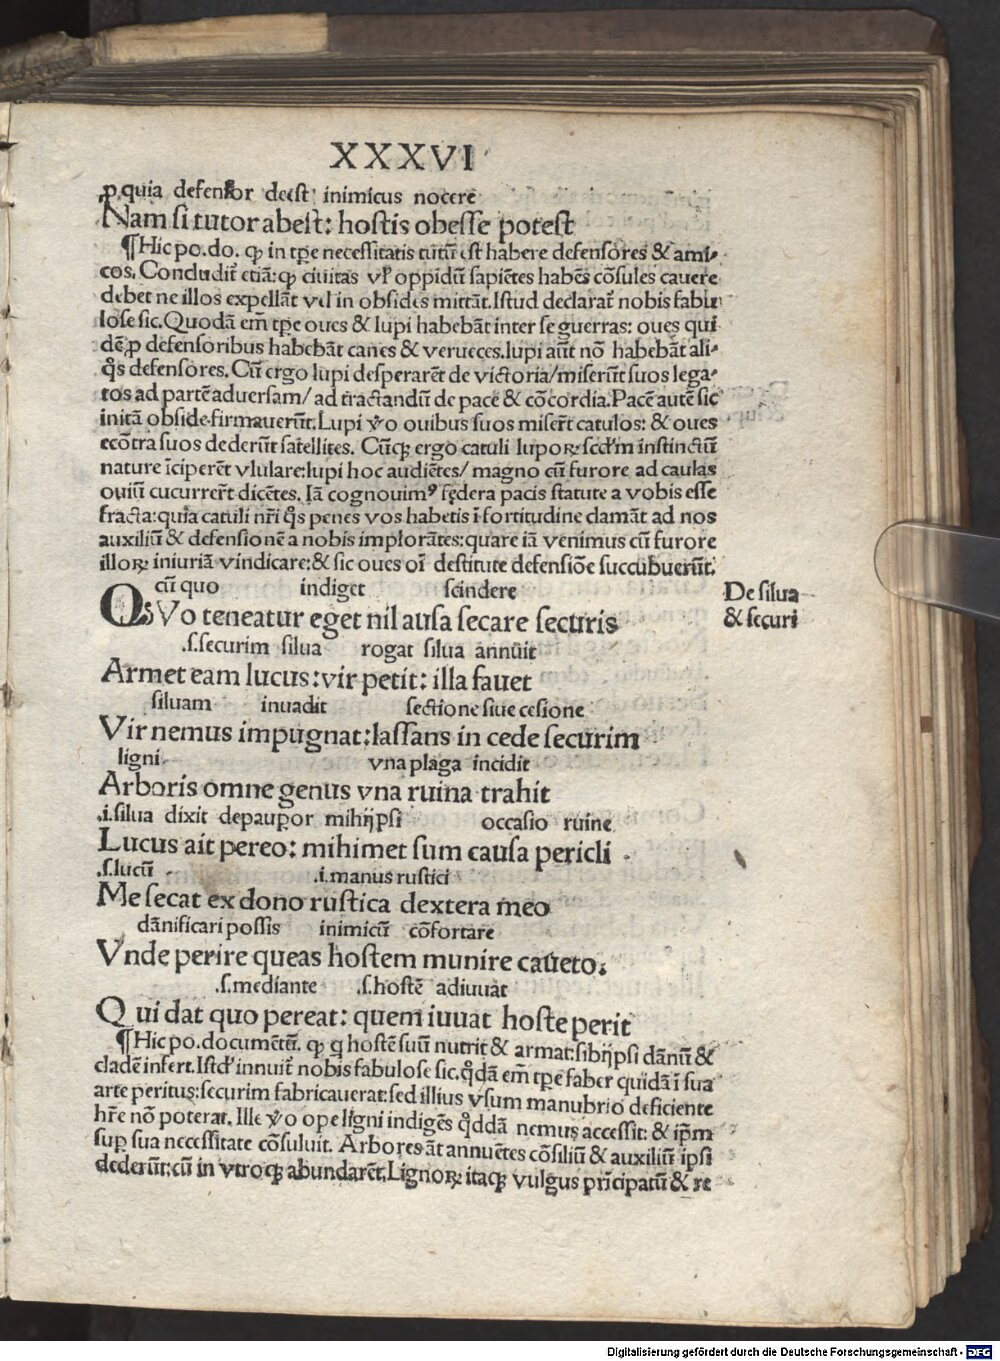 XXXVI
.p.quia defensor deest inimicus nocere
Nam si tutor abest: hostis obesse potest
¶Hic po.do. ꝙ in tp̄e necessitatis tutū est habere defensores & ami⸗
cos. Concludit̄ etiā: ꝙ ciuitas vl̓ oppidū sapiētes habēs cōsules cauere
debet ne illos expellāt vel in obsides mittāt. Istud declarat̄ nobis fabu
lose sic. Quodā em̄ tp̄e oues & lupi habebāt inter se guerras: oues qui
dē ꝓ defensoribus habebāt canes & verueces. lupi aūt nō habebāt ali⸗
q̊s defensores. Cū ergo lupi desperarēt de victoria/ miserūt suos lega⸗
tos ad partē aduersam/ ad tractandū de pace & cōcordia. Pacē autē sic
initā obside firmauerūt. Lupi v̊o ouibus suos miser̄t catulos: & oues
ecōtra suos dederūt satellites. Cūqꝫ ergo catuli lupoꝝ scd'm instinctū
nature īciperēt vlulare: lupi hoc audiētes/ magno cū furore ad caulas
ouiū cucurrer̄t dicētes. Iā cognouimꝰ fędera pacis statute a vobis esse
fracta: quia catuli nr̄i q̊s penes vos habetis ī fortitudine clamāt ad nos
auxiliū & defensionē a nobis implorātes: quare iā venimus cū furore
illoꝝ iniuriā vindicare: & sic oues oī destitute defensiōe succubuerūt.
cū quo indiget scindere
QVo teneatur eget nil ausa secare securis
De silua
& securi
.s.securim silua rogat silua annuit
Armet eam lucus: vir petit: illa fauet
siluam inuadit sectione siue cesione
Vir nemus impugnat: lassans in cede securim
ligni vna plaga incidit
Arboris omne genus vna ruina trahit
.i.silua dixit depaupor mihijpsi occasio ruine
Lucus ait pereo: mihimet sum causa pericli
.s.lucū .i.manus rustici
Me secat ex dono rustica dextera meo
dānificari possis inimicū cōfortare
Vnde perire queas hostem munire caueto.
.s.mediante .s.hostē adiuuat
Qui dat quo pereat: quem iuuat hoste perit
¶Hic po.documētū. ꝙ q hostē suū nutrit & armat: sibijpsi dānū &
cladē infert. Istd' innuit̄ nobis fabulose sic. q̊dā em̄ tp̄e faber quidā ī sua
arte peritus: securim fabricauerat: sed illius vsum manubrio deficiente
hr̄e nō poterat. Ille v̊o ope ligni indigēs q̊ddā nemus accessit: & ip̄m
suꝑ sua necessitate cōsuluit. Arbores āt annuētes cōsiliū & auxiliū ipsi
dederūt: cū in vtroqꝫ abundarēt. Lignoꝝ itaqꝫ vulgus pr̄icipatū & re
Digitalisierung gefördert durch die Deutsche Forschungsgemeinschaft - DFG